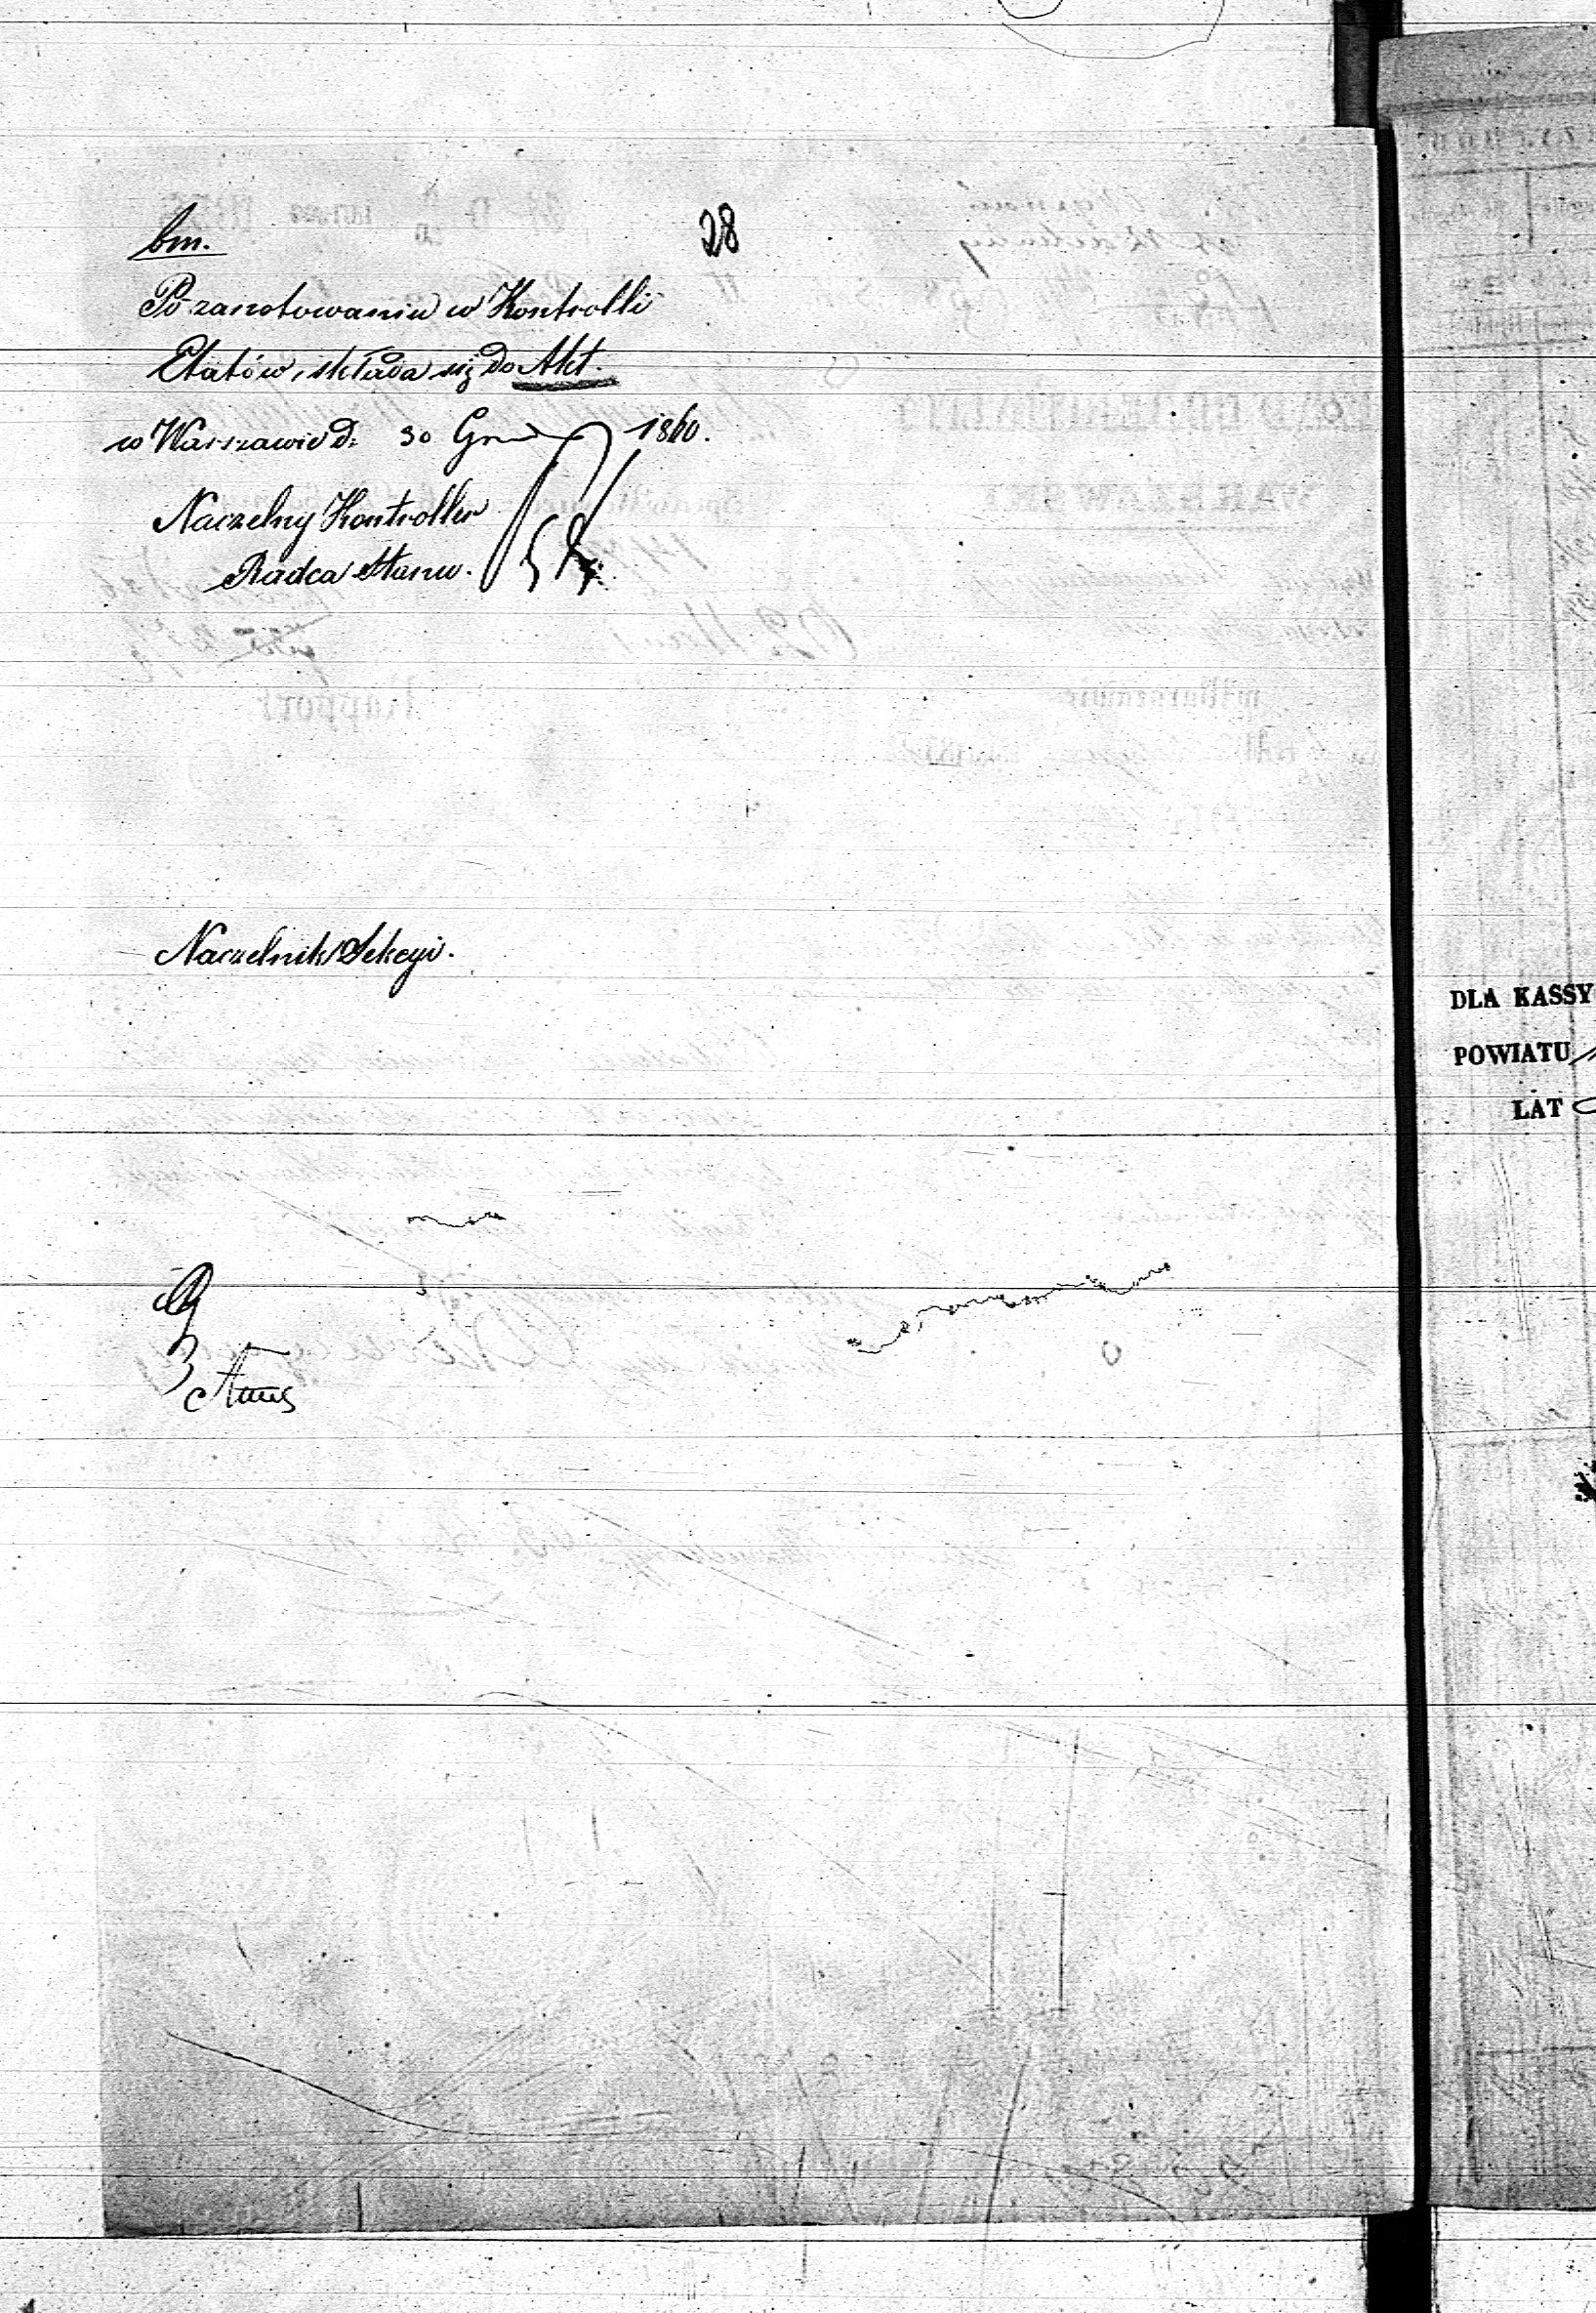 bm.
28
Po zanotowaniu w Kontrolli
Etatów, składa się do Akt.
w Warszawie d: 30 1860.
Naczelny Kontroller
Radca Stanu.
Naczelnik Sekcyi.
DLA KASSY
POWIATU
LAT